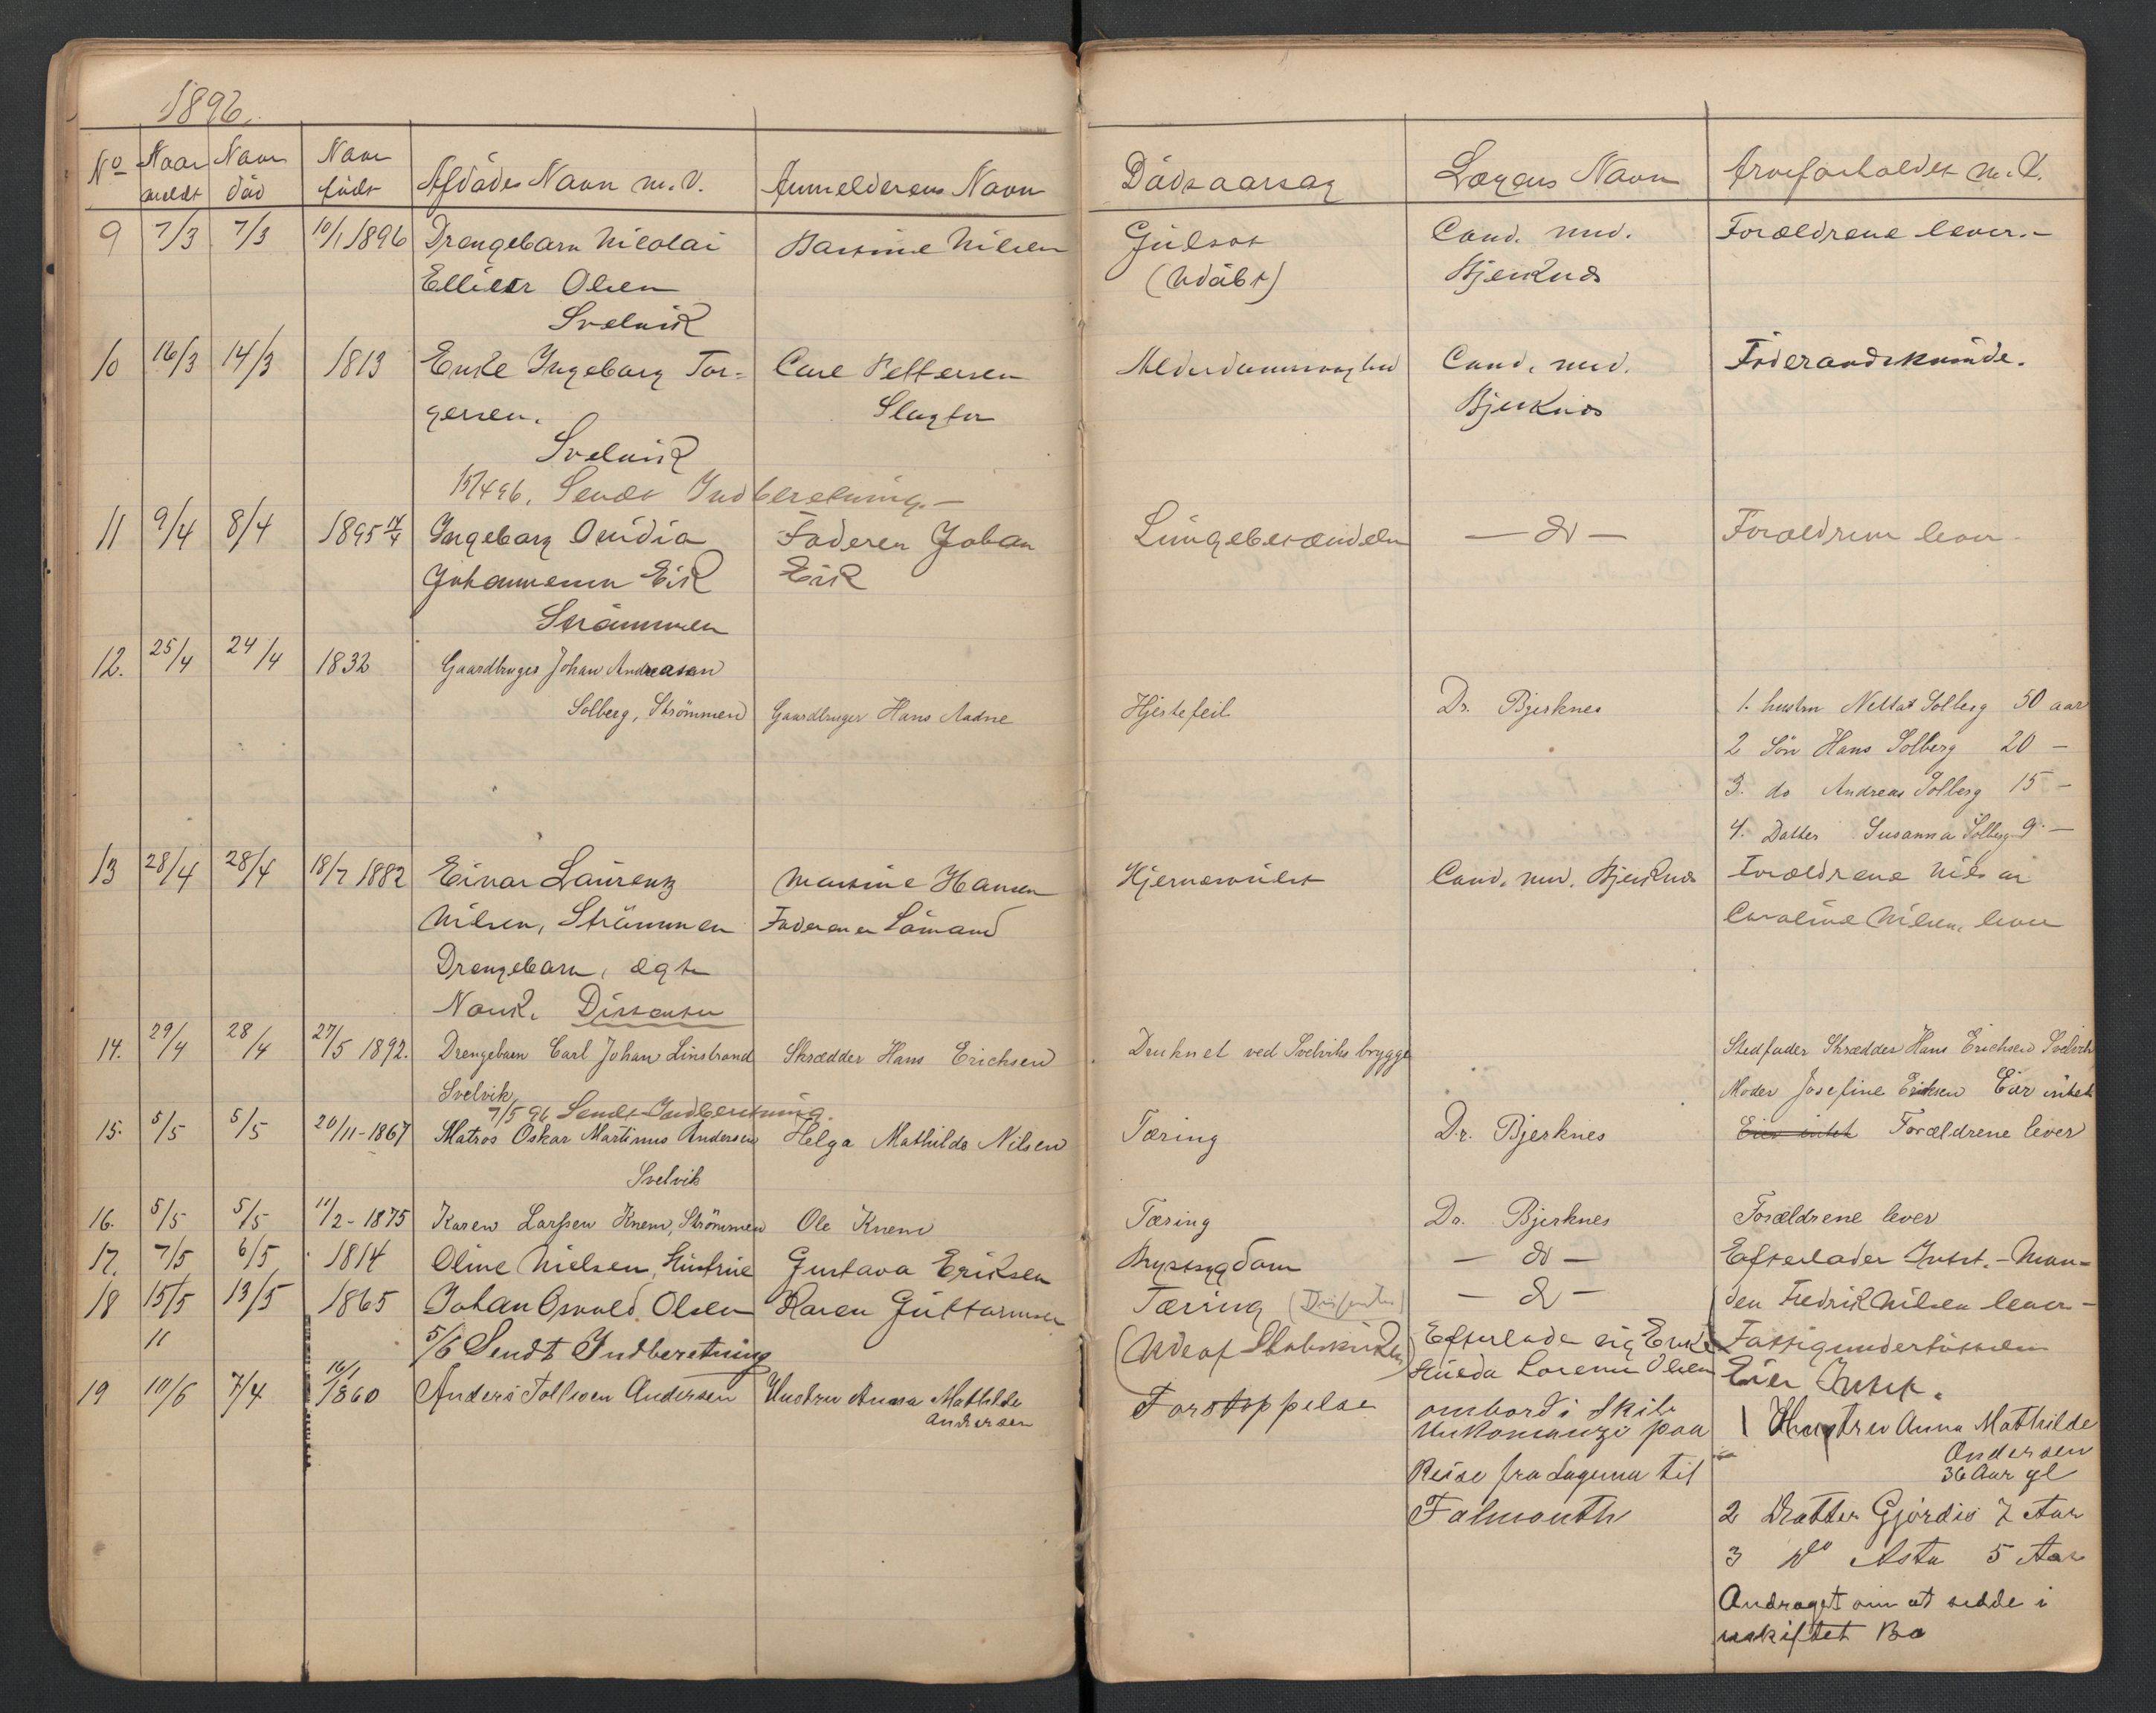 1896.
No Naar meldt Naar död Naar födt Afdödes Navn m.V. Anmelderens Navn Dödsaarsag Lægens Navn Arveforholdet m.V.
9 7/3 7/3 10/1 1896 Drengebarn Nicolai Nilsen Gulsot Cand. med. Forældrene lever.-
Olsen (Udöbt) Bjerknes
Svelvik
10 16/3 14/3 1813 Enke Ingeborg Tor= Carl Pettersen Alderdomssvaghed Cand. med. Föderaadskvinde.
gersen. Slagter Bjerknes
Svelvik
15/4 96. Sendt Indberetning.-
11 9/4 8/4 1895 Ingeborg Ovidia Faderen Johan Lungebetændelse - do - Forældrene lever.
Johannesen Eik Eik
Strömmen
12. 25/4 24/4 1832 Gaardbruger Johan Andreasen
Solberg, Strömmen Gaardbruger Hans Aadne Hjertefeil Dr. Bjerknes 1. hustru Solberg 50 aar
2 Sön Hans Solberg 20 -
3. do Andreas Solberg 15 -
4. Datter Susanna Solberg 9 -
13 28/4 28/4 18/7 1882 Einar Laurenz Hansen Cand. med. Bjerknes Forældrene Nils og
Nilsen, Strömmen Faderen er Sömand Caroline Nilsen, lever
Drengebarn, ægte
Norsk. Dissenter
14. 29/4 28/4 27/5 1892. Drengebarn Carl Johan Linstrand Skrædder Hans Erichsen Druknet ved Svelviks brygge Stedfader Skrædder Hans Erichsen Svelvik
Svelvik, Moder Josefine Eriksen Eier intet
7/5 96 Sendt Indberetning.
15. 5/5 5/5 20/11-1867 Matros Oskar Martinus Andersen Helga Mathilde Nilsen Tæring Dr. Bjerknes Eier intet Forældrene lever
Svelvik
16. 5/5 5/5 11/2-1875 Karen Larsen Knem, Strömmen Ole Knem Tæring Dr. Bjerknes Forældrene lever
17. 7/5 6/5 1814 Oline Nielsen, Hustrue Gustava Eriksen Brystsygdom - do - Efterlader Intet.- Man=
18 15/5 13/5 1865 Johan Osvald Olsen Karen Guttormsen Tæring (Dissenter) - do - den Fredrik Nilsen lever-
" 5/6 Sendt Indberetning (Ude af Statskirken) Efterlader sig Enke Fattigunderstöttelse
Olsen Eier Intet.
19 10/6 7/4 16/1 1860 Anders Tollesen Andersen Hustru Anna Mathilde Andersen Forstoppelse ombord i Skib
paa 1 Hustru Anna Mathilde Andersen
36 Aar gl
Reise fra Laguna til
Falmouth 2 Datter Gjördis 7 Aar
3 do Asta 5 Aar
Andraget om at sidde i
uskiftet Bo